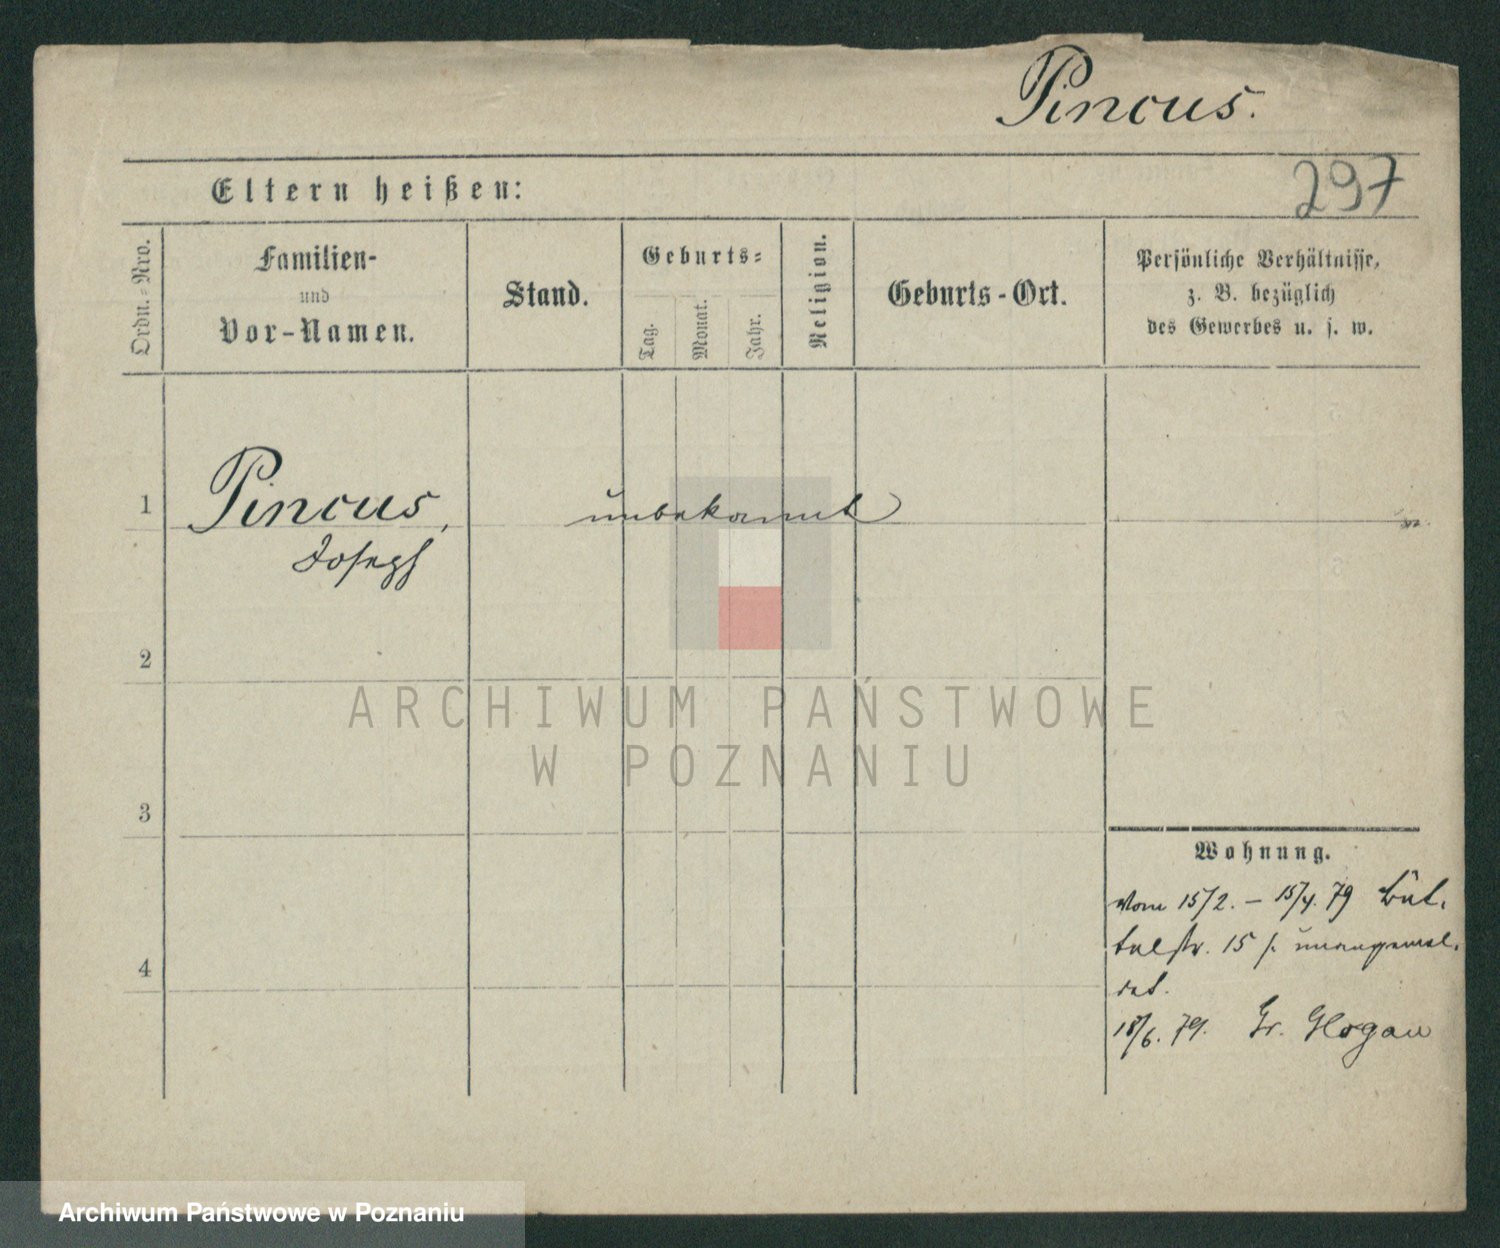 Pincus.
Eltern heißen:
297
Ordn.-Nro.
Familien-
und
Vor-Namen.
Stand.
Geburts-
Tag.
Monat.
Jahr.
Religion.
Geburts-Ort.
Persönliche Verhältnisse,
z. B. bezüglich
des Gewerbes u. s. w.
1
Pincus,
unbekannt
Joseph
2
ARCHIWUM PAŃSTWOWE
W POZNANIU
3
Wohnung.
vom 15/2. – 15/4. 79 Büt-
telstr. 15 f. unangemel-
det.
4
18/6. 79. Gr. Glogau
Archiwum Państwowe w Poznaniu